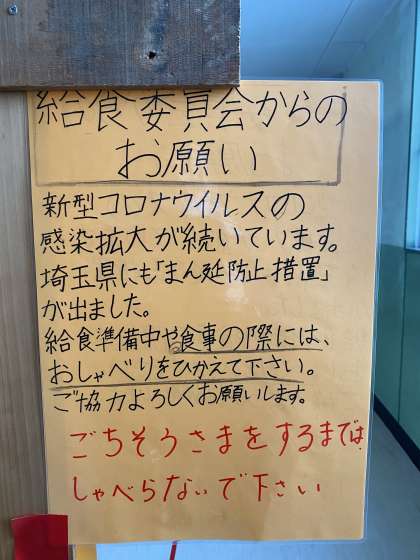 給食委員会からの
お願い
新型コロナウイルスの
感染拡大が続いています。
埼玉県にも「まん延防止措置」
が出ました。
給食準備中や食事の際には、
おしゃべりをひかえて下さい。
ご協力よろしくお願いします。
ごちそうさまをするまでは
しゃべらないで下さい